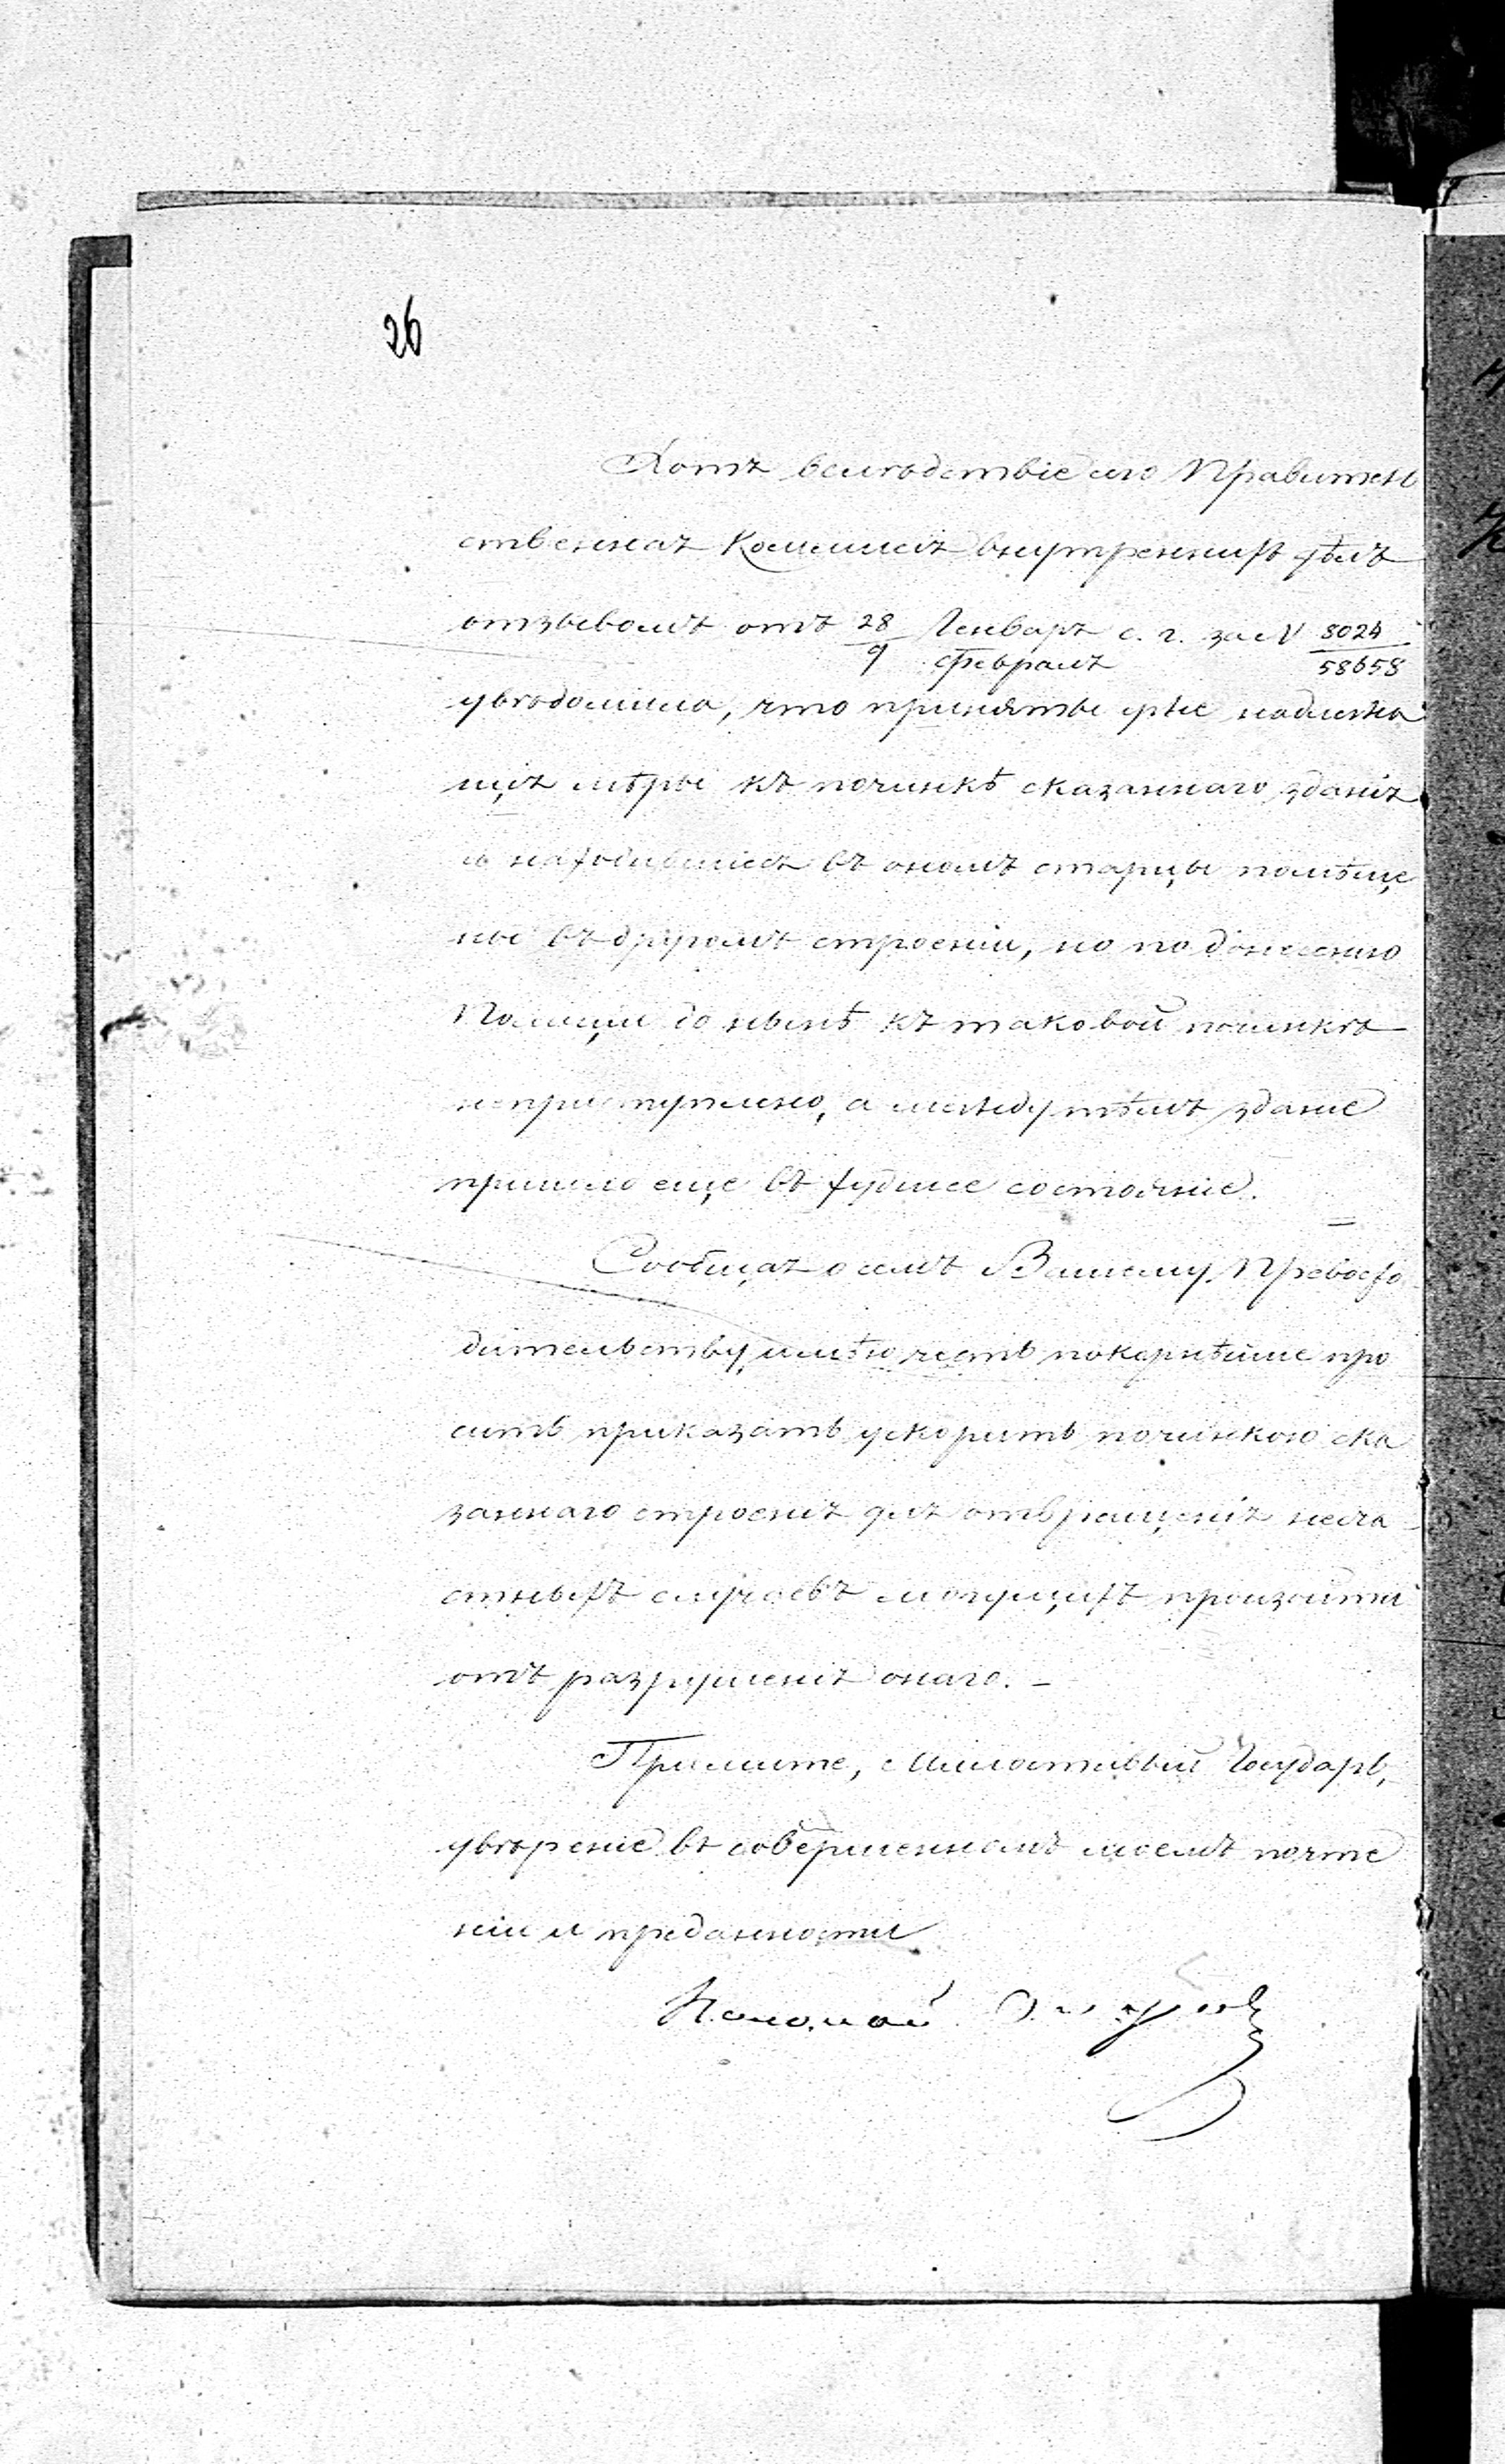 26
Хотя вслѣдствіе сего Правитель
ственная Коммисія внутреннихъ дѣлъ
отзывомъ отъ 28/9 Генваря/февраля с. г. за N 8024/58658
увѣдомила, что приняты уже надлежа
щія мѣры къ починкѣ сказаннаго зданія
и находившіеся въ ономъ старцы помѣще
ны въ другомъ строеніи, но по донесенію
Полиціи до нынѣ къ таковой починкѣ
неприступлено, а между тѣмъ зданіе
пришло еще въ худшее состояніе.
Сообщая о семъ Вашему Превосхо
дительству, имѣю честь покорнѣйше про
сить приказать ускорить починкою ска
заннаго строенія для отвращенія несча
стныхъ случаевъ могущихъ произойти
отъ разрушенія онаго. –
Примите, Милостивый Государь,
увѣреніе въ совершенномъ моемъ почте
ніи и преданности